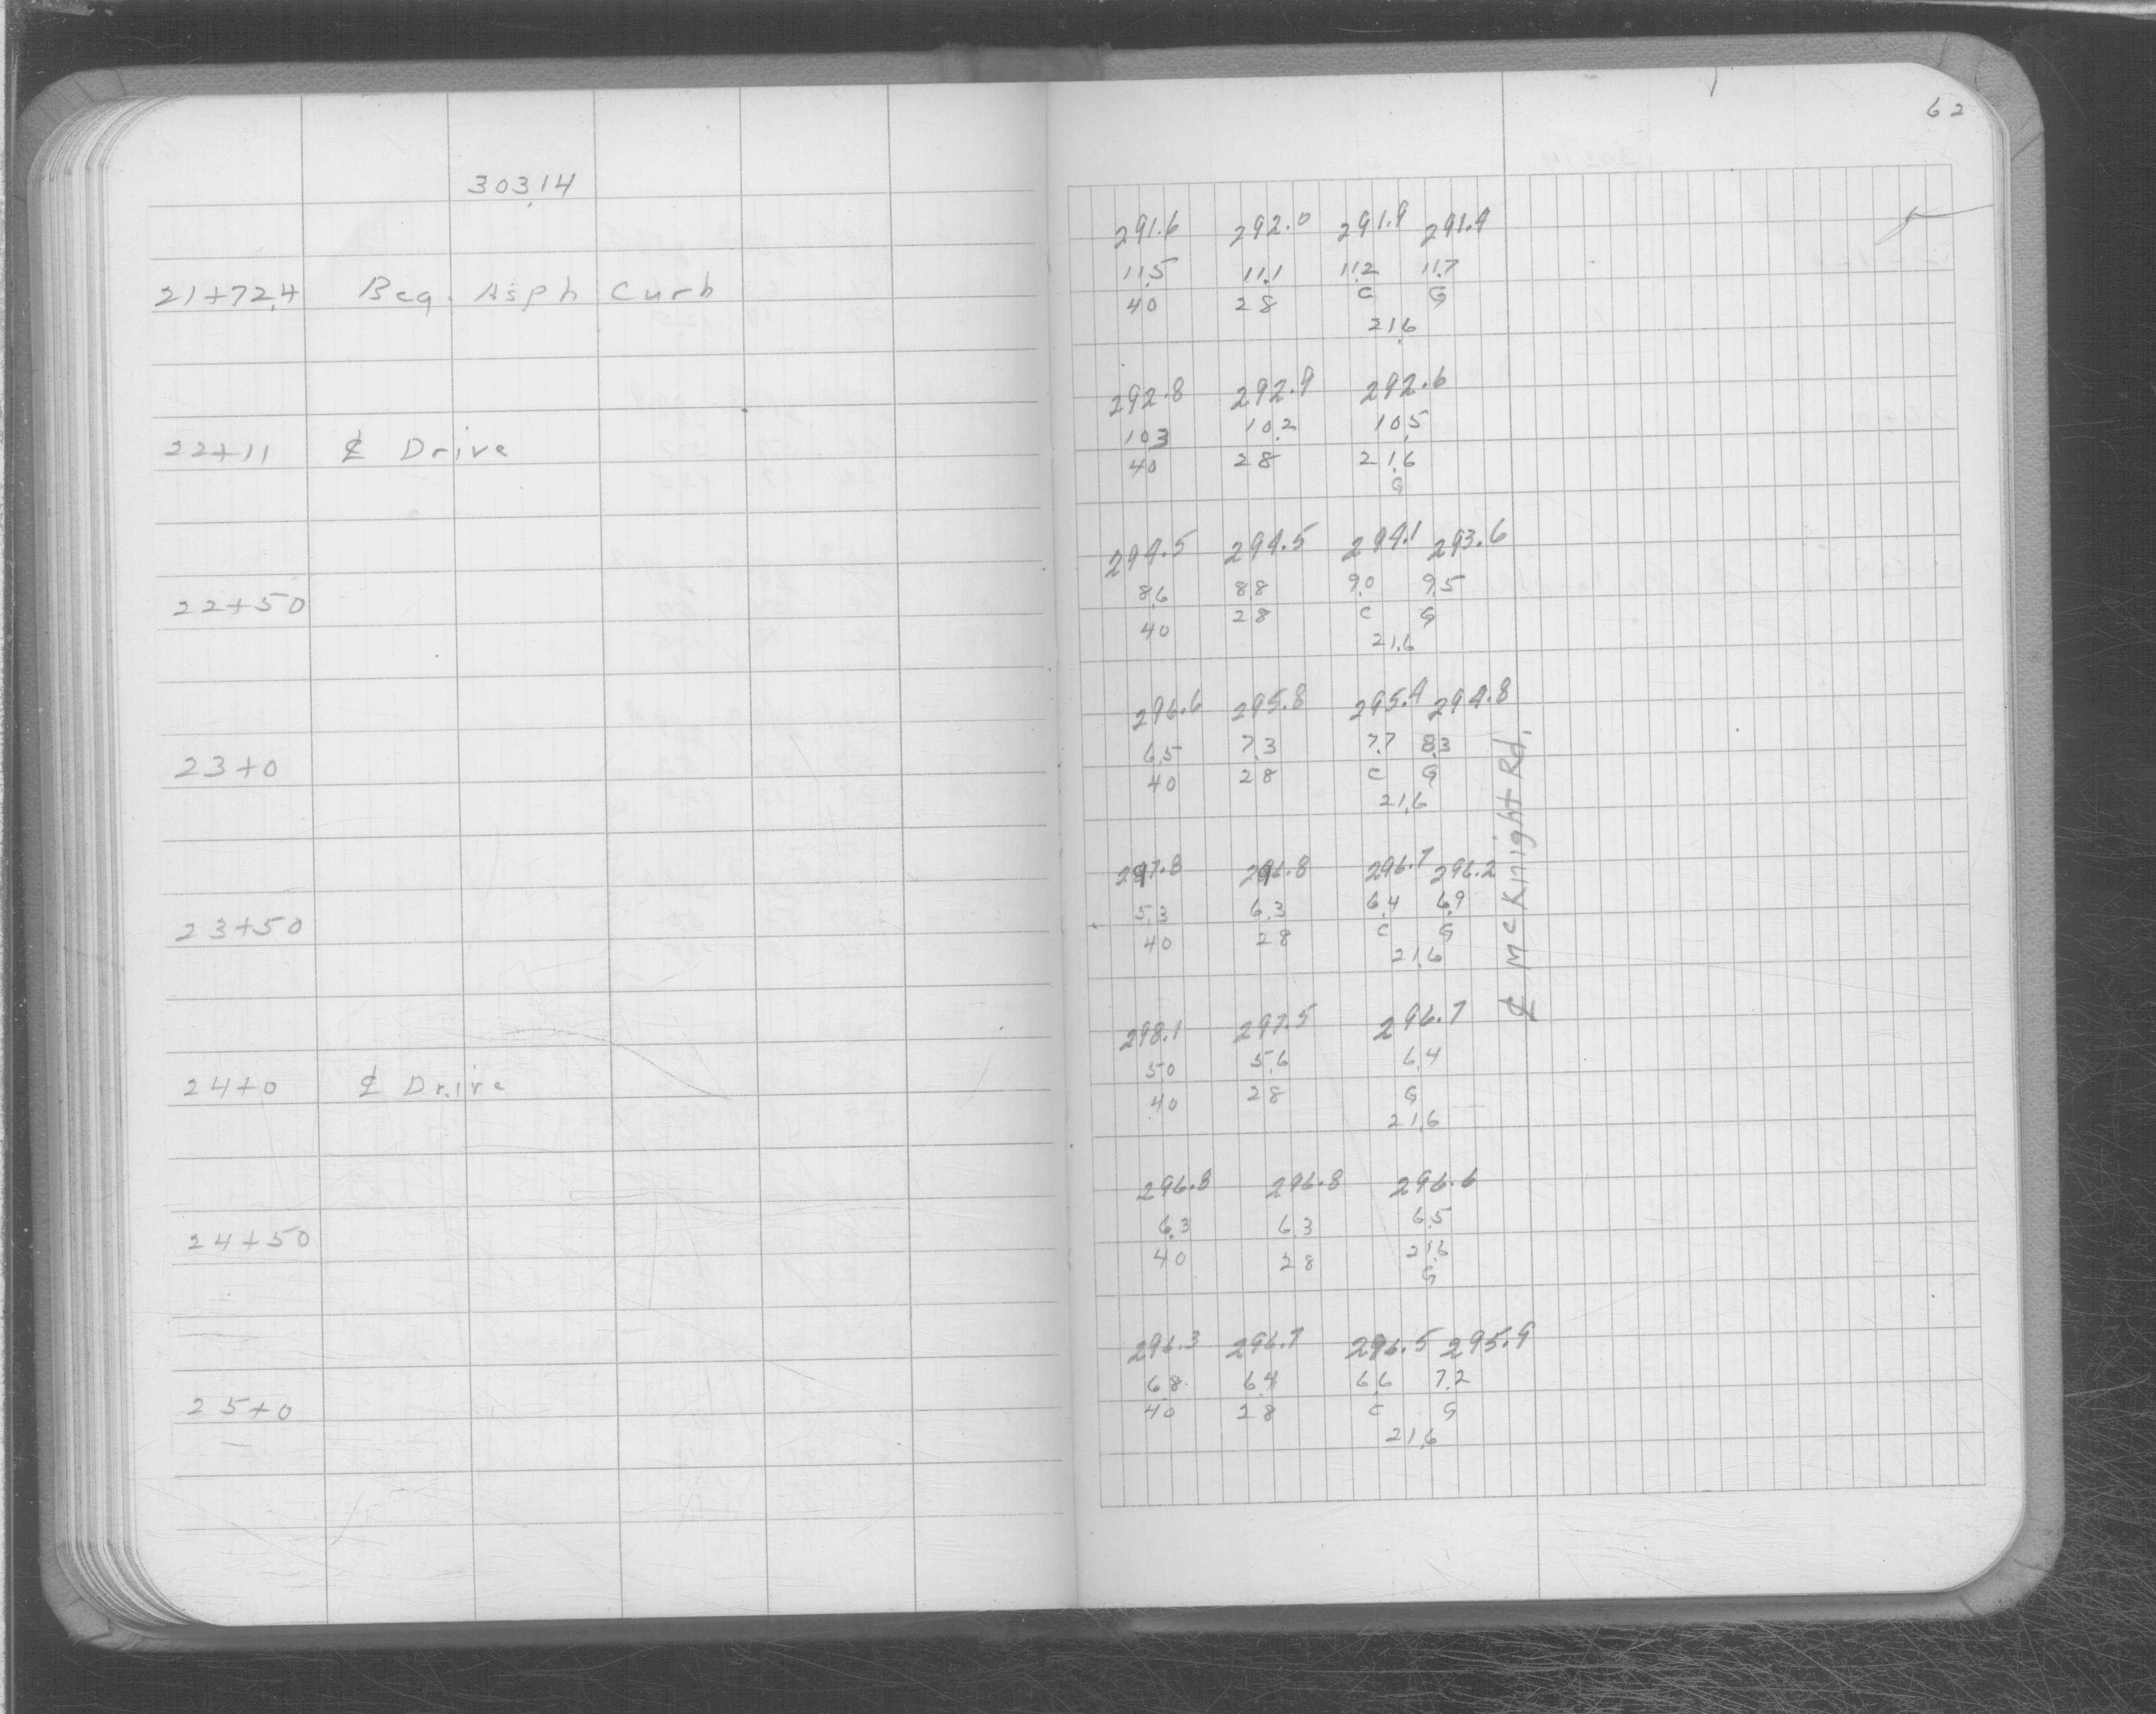 62
303.14
291.6 292.0 291.9 291.4
11.5 11.1 11.2 11.7
21+72.4 Beg. Asph Curb
40 28 C G
21.6
292.8 292.9 292.6
10.3 10.2 10.5
22+11 ℄ Drive
40 28 21.6
G
294.5 294.5 294.1 293.6
8.6 8.8 9.0 9.5
22+50
40 28 C G
21.6
296.6 295.8 295.4 294.8
6.5 7.3 7.7 8.3
23+0
40 28 C G
21.6
297.8 296.8 296.7 296.2
5.3 6.3 6.4 6.9
23+50
40 28 C G
21.6
℄ McKnight Rd.
298.1 297.5 296.7
5.0 5.6 6.4
24+0 ℄ Drive
40 28 G
21.6
296.8 296.8 296.6
6.3 6.3 6.5
24+50
40 28 21.6
G
296.3 296.7 296.5 295.9
6.8 6.4 6.6 7.2
25+0
40 28 C G
21.6